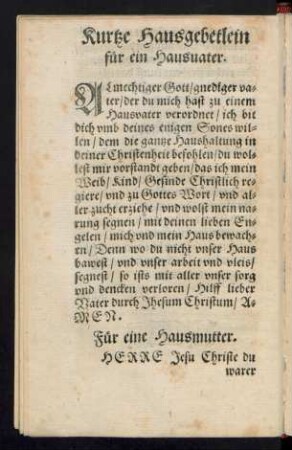 Kurtze Hausgebetlein
für ein Hausuater.
ALmechtiger Gott/gnediger va-
ter/der du mich hast zu einem
Hausvater verordnet/ich bit
dich vmb deines enigen Sones wil-
len/dem die gantze Haushaltung in
deiner Christenheit befohlen/du wol-
lest mir vorstandt geben/das ich mein
Weib/Kind/Gesinde Christlich re-
giere/vnd zu Gottes Wort/vnd al-
ler zucht erziehe/vnd wolst mein na-
rung segnen/mit deinen lieben En-
gelen/mich vnd mein Haus bewach-
en/Denn wo du nicht vnser Haus
bawest/vnd vnser arbeit vnd vleis/
segnest/so ists mit aller vnser sorg
vnd dencken verloren/Hilff lieber
Vater durch Jhesum Christum/A-
MEN.
Für eine Hausmutter.
HERRE Jesu Christe du
warer